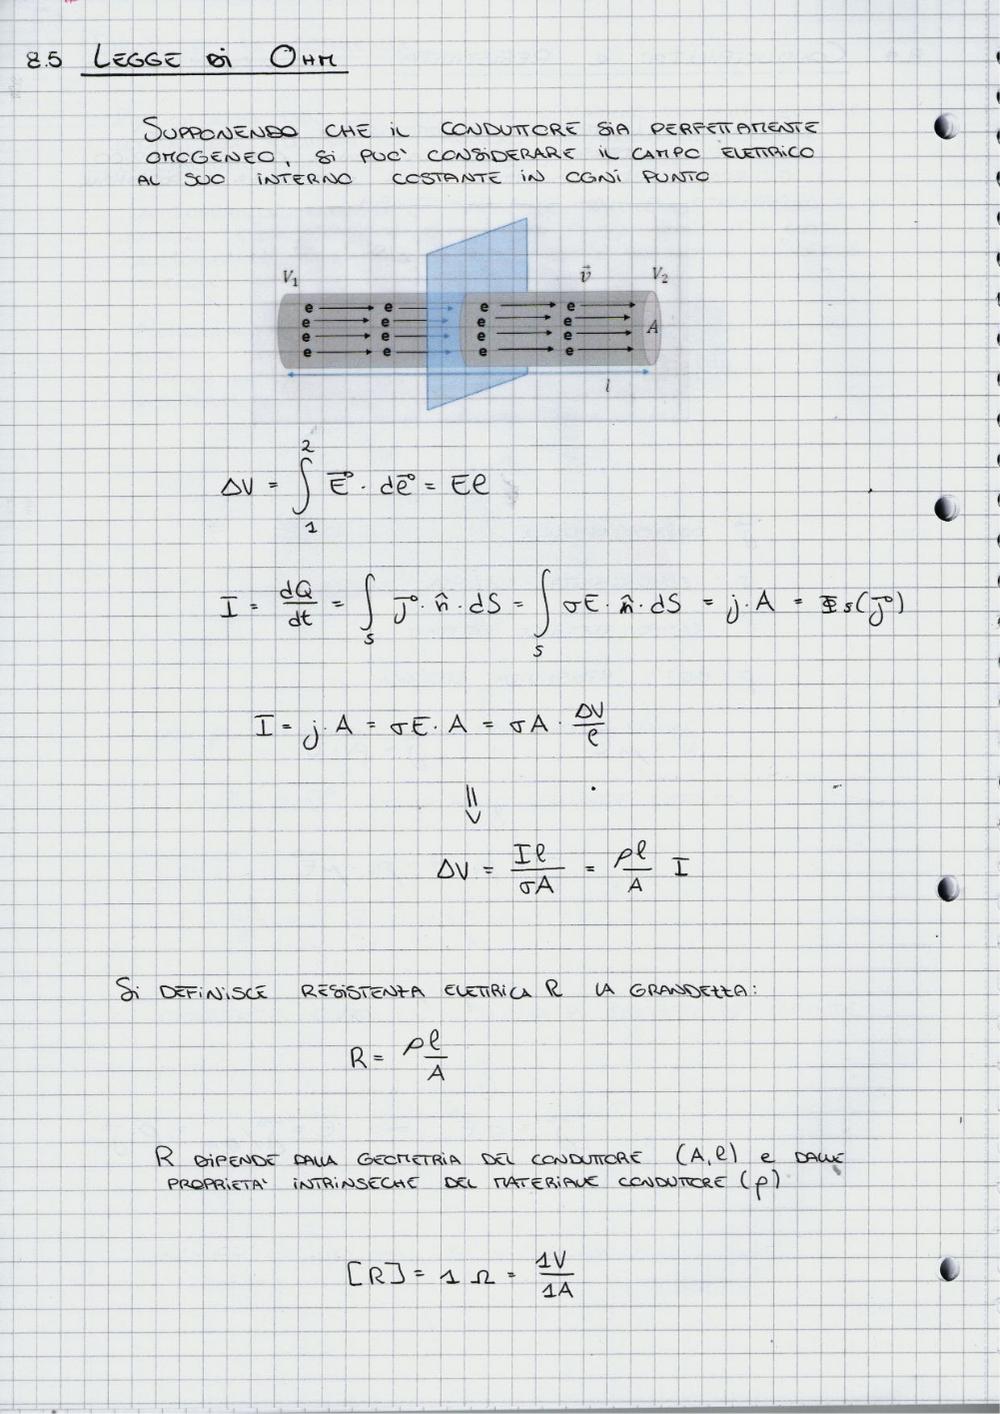 8.5 LEGGE DI OHM
SUPPONENDO CHE IL CONDUTTORE SIA PERFETTAMENTE
OMOGENEO, SI PUO' CONSIDERARE IL CAMPO ELETTRICO
AL SUO INTERNO COSTANTE IN OGNI PUNTO
V₁ v⃗ V₂
e e e e
e e e e
e e e e
e e e e
A
l
ΔV = ∫₁² E⃗ · dℓ⃗ = Eℓ
I = dQ/dt = ∫_S J⃗ · n̂ · dS = ∫_S σE · n̂ · dS = j · A = Φ_S(J⃗)
I = j · A = σE · A = σA · ΔV/ℓ
⇓
ΔV = Iℓ/σA = ρℓ/A I
SI DEFINISCE RESISTENZA ELETTRICA R LA GRANDEZZA:
R = ρℓ/A
R DIPENDE DALLA GEOMETRIA DEL CONDUTTORE (A, ℓ) E DALLE
PROPRIETA' INTRINSECHE DEL MATERIALE CONDUTTORE (ρ)
[R] = 1 Ω = 1V/1A